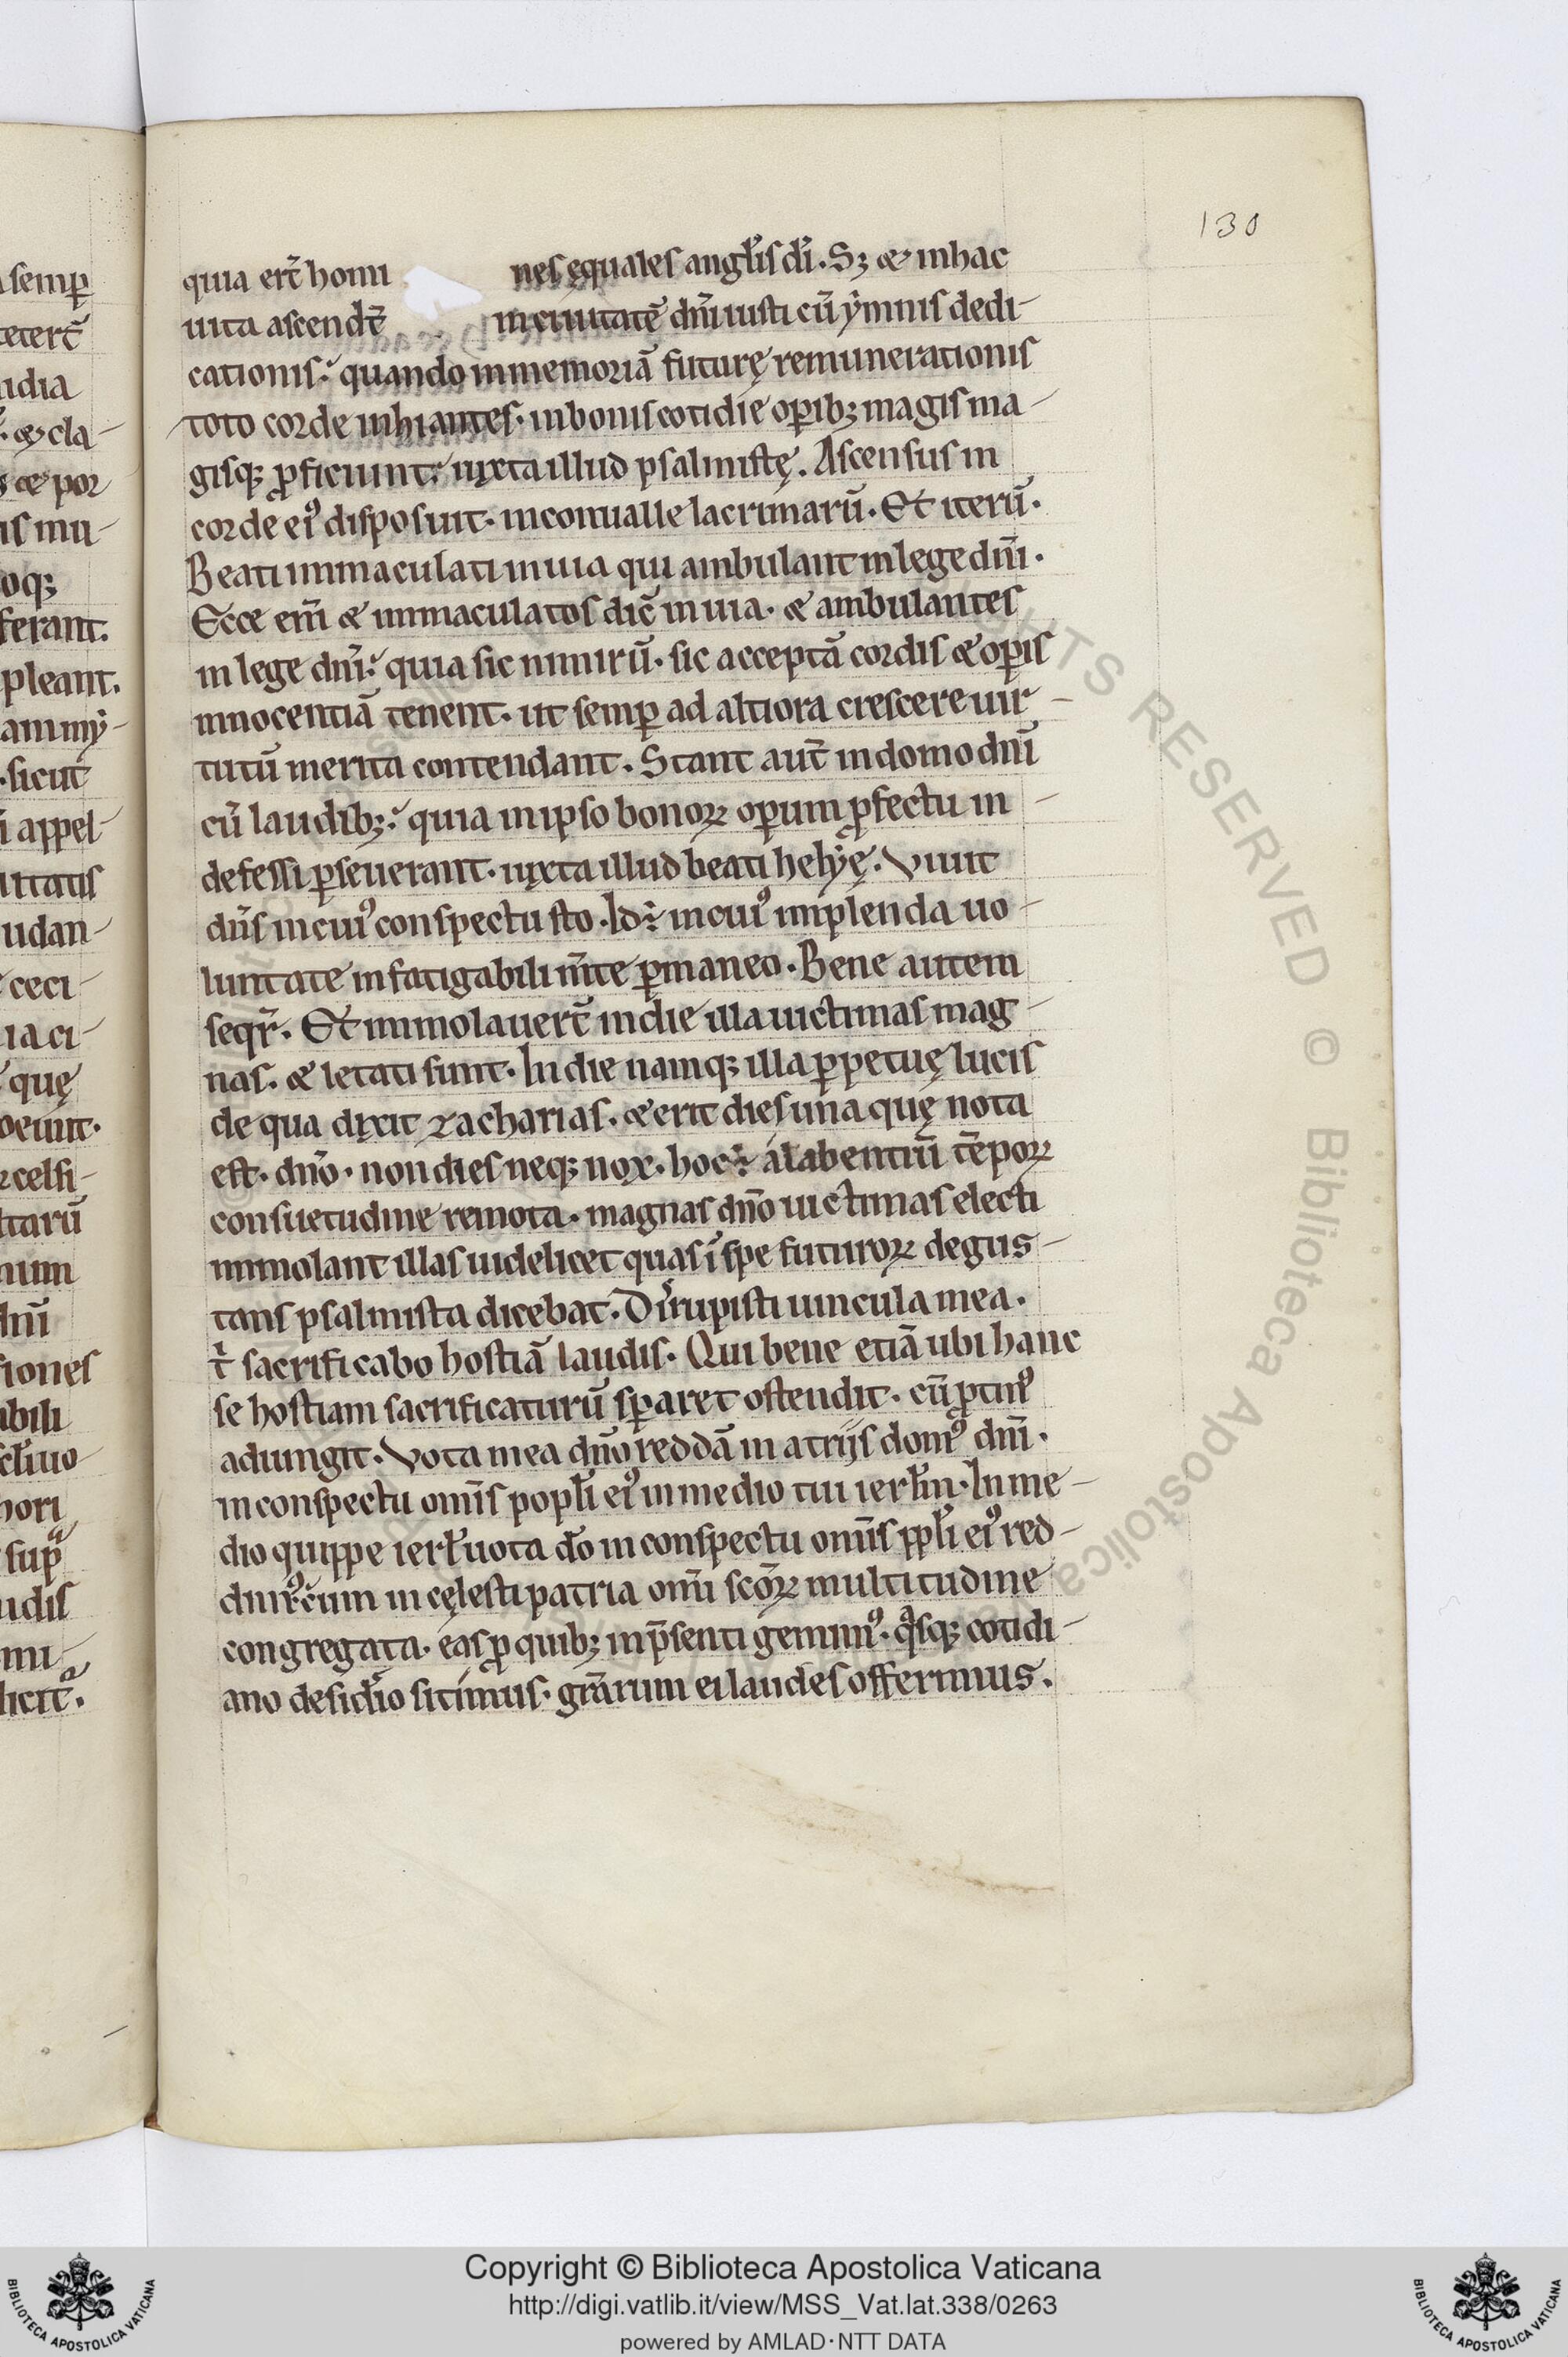 130
quia ert̄ homi nes ęquales angl̄is dī. Sꝫ & in hac
uita ascendt̄ in ciuitatē dn̄i iusti cū ẏmnis dedi-
cationis. quando in memoriā futurę remunerationis
toto corde inhiantes. in bonis cotidie oꝑibꝫ magis ma-
gisqꝫ ꝓficiunt. iuxta illud psalmistę. Ascensus in
corde eiꝰ disposuit. in conualle lacrimarū. Et iterū.
Beati immaculati in uia qui ambulant in lege dn̄i.
Ecce em̄ & immaculatos dic̄ in uia. & ambulantes
in lege dn̄i. quia sic nimirū. sic acceptā cordis & oꝑis
innocentiā tenent. ut semꝑ ad altiora crescere uir-
tutū merita contendant. Stant aut̄ in domo dn̄i
cū laudibꝫ. quia in ipso bonoꝝ oꝑum ꝓfectu in-
defessi ꝑseuerant. iuxta illud beati helẏę. Viuit
dn̄s in cuiꝰ conspectu sto. Id ÷ in cuiꝰ implenda uo-
luntate infatigabili m̄te ꝑmaneo. Bene autem
seqr̄. Et immolauert̄ in die illa uictimas mag-
nas. & letati sunt. In die namqꝫ illa ꝑpetuę lucis
de qua dixit zacharias. & erit dies una quę nota
est. dn̄o. non dies neqꝫ nox. hoc ÷ a labentiū tēpoꝝ
consuetudine remota. magnas dn̄o uictimas electi
immolant illas uidelicet quas ī spe futuroꝝ degus-
tans psalmista dicebat. Dirupisti uincula mea.
t' sacrificabo hostiā laudis. Qui bene etiā ubi hanc
se hostiam sacrificaturū sꝑaret ostendit. cū ꝓtinꝰ
adiungit. Vota mea dn̄o reddā in atriis domꝰ dn̄i.
in conspectu omīs popl̄i eiꝰ in medio tui ierl̄m. In me-
dio quippe ierl̄ uota dō in conspectu omīs ppl̄i eiꝰ red-
dimꝰ. cum in cęlesti patria omī scōꝝ multitudine
congregata. eas ꝓ quibꝫ in p̄senti gemimꝰ. qisqꝫ cotidi-
ano desidīo sitimus. grārum ei laudes offerimus.
Copyright © Biblioteca Apostolica Vaticana
http://digi.vatlib.it/view/MSS_Vat.lat.338/0263
powered by AMLAD·NTT DATA